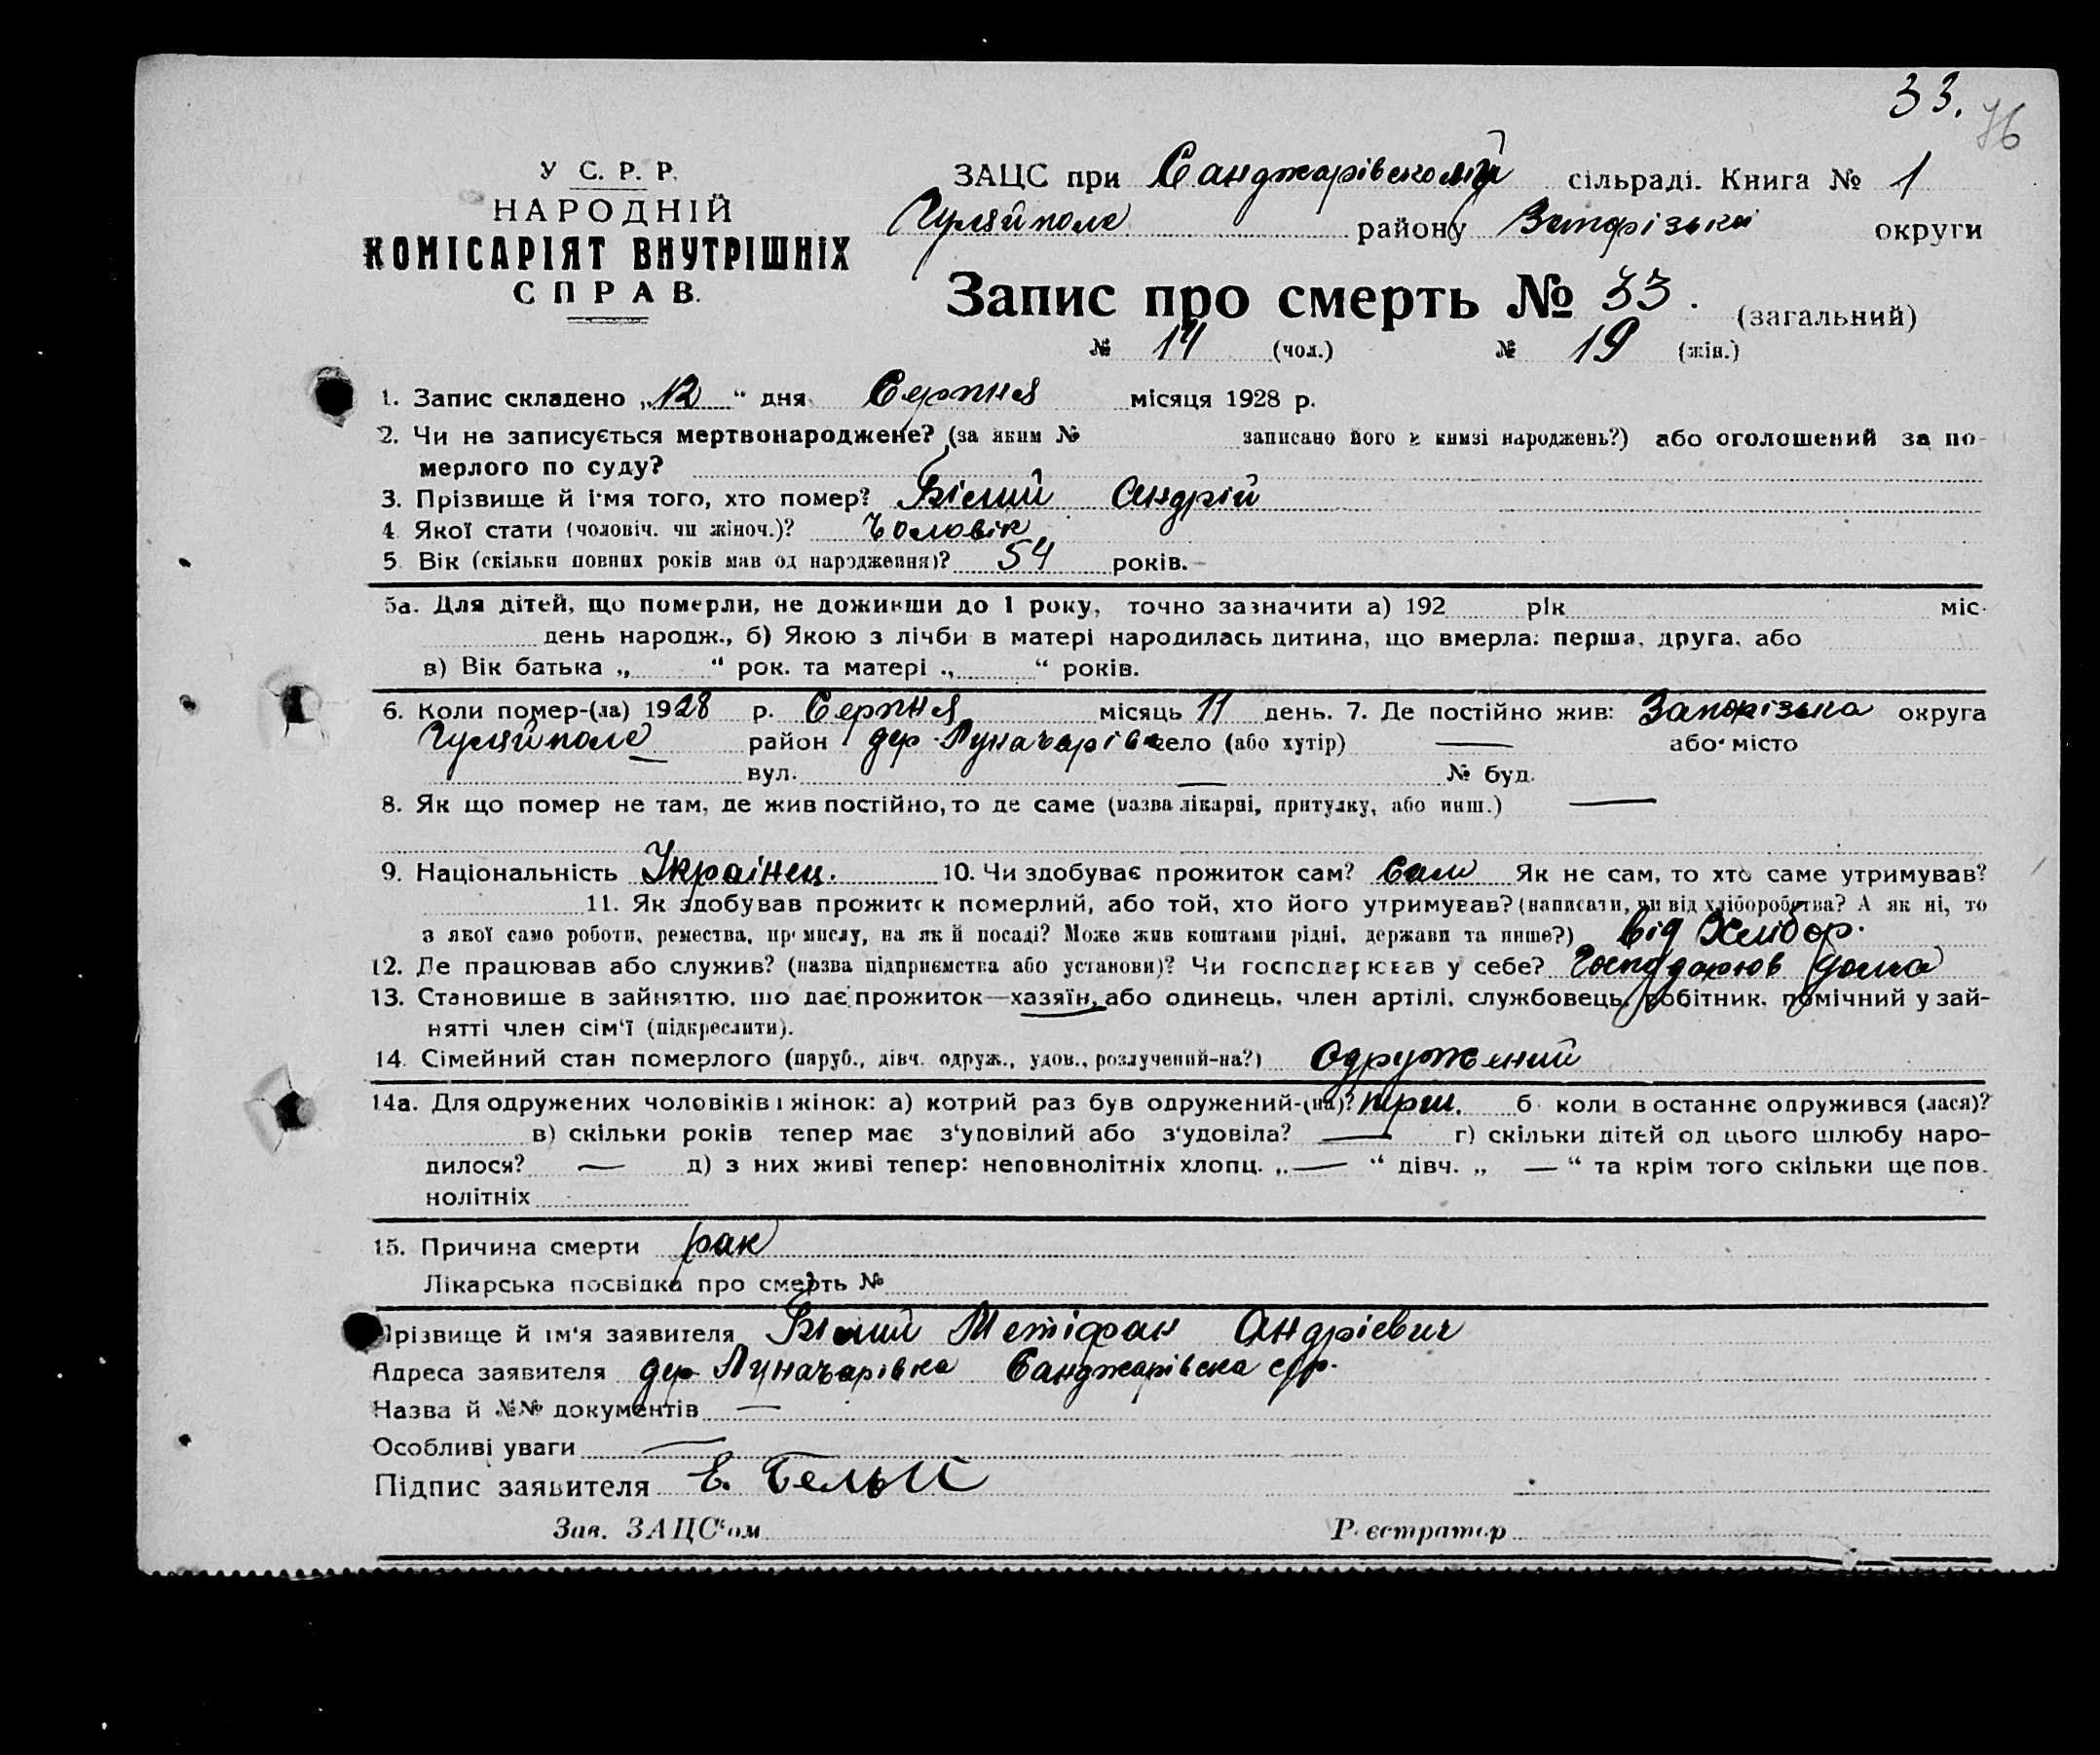 33.
76
У С. Р. Р.
НАРОДНІЙ
КОМІСАРІЯТ ВНУТРІШНІХ
СПРАВ.
ЗАЦС при Санджарівскомуй сільраді. Книга № 1
Гуляйполе району Запорізькоі округи
Запис про смерть № 33. (загальний)
№ 14 (чол.) № 19 (жін.)
1. Запис складено „12“ дня Серпня місяця 1928 р.
2. Чи не записується мертвонароджене? (за яким № записано його в книзі народжень?) або оголошений за по-
мерлого по суду?
3. Прізвище й ім'я того, хто помер? Білий Андрій
4 Якої стати (чоловіч. чи жіноч.)? Чоловік
5. Вік (скільки повних років мав од народження)? 54 років.
5а. Для дітей, що померли, не доживши до 1 року, точно зазначити а) 192 рік міс.
день народж., б) Якою з лічби в матері народилась дитина, що вмерла: перша, друга, або
в) Вік батька „ “ рок. та матері „ “ років.
6. Коли помер-(ла) 1928 р. Серпня місяць 11 день. 7. Де постійно жив: Запорізька округа
Гуляйполе район дер. Луначарівк село (або хутір) — або місто
вул. — № буд.
8. Як що помер не там, де жив постійно, то де саме (назва лікарні, притулку, або инш.) —
9. Національність Украінец. 10. Чи здобуває прожиток сам? Сам Як не сам, то хто саме утримував?
11. Як здобував прожиток померлий, або той, хто його утримував? (написати, чи від хліборобства? А як ні, то
з якої само роботи, ремества, промислу, на якій посаді? Може жив коштами рідні, держави та инше?) Від Хлібор.
12. Де працював або служив? (назва підприємства або установи)? Чи господарював у себе? Господарюв дома
13. Становище в зайняттю, що дає прожиток—хазяїн, або одинець, член артілі, службовець, робітник, помічний у зай-
нятті член сім'ї (підкреслити).
14. Сімейний стан померлого (паруб., дівч. одруж., удов., розлучений-на?) Одружений
14а. Для одружених чоловіків і жінок: а) котрий раз був одружений-(на)? перш. б коли в останнє одружився (лася)?
в) скільки років тепер має з'уповілий або з'удовіла? — г) скільки дітей од цього шлюбу наро-
дилося? — д) з них живі тепер: неповнолітніх хлопц. „—“ дівч. „—“ та крім того скільки ще пов.
нолітніх
15. Причина смерти рак
Лікарська посвідка про смерть №
Прізвище й ім'я заявителя Білий Метіфан Андріевич
Адреса заявителя дер Луначарівка Санджарівска с/р.
Назва й №№ документів —
Особливі уваги —
Підпис заявителя Е. Белый
Зав. ЗАЦС'ом Реєстратор